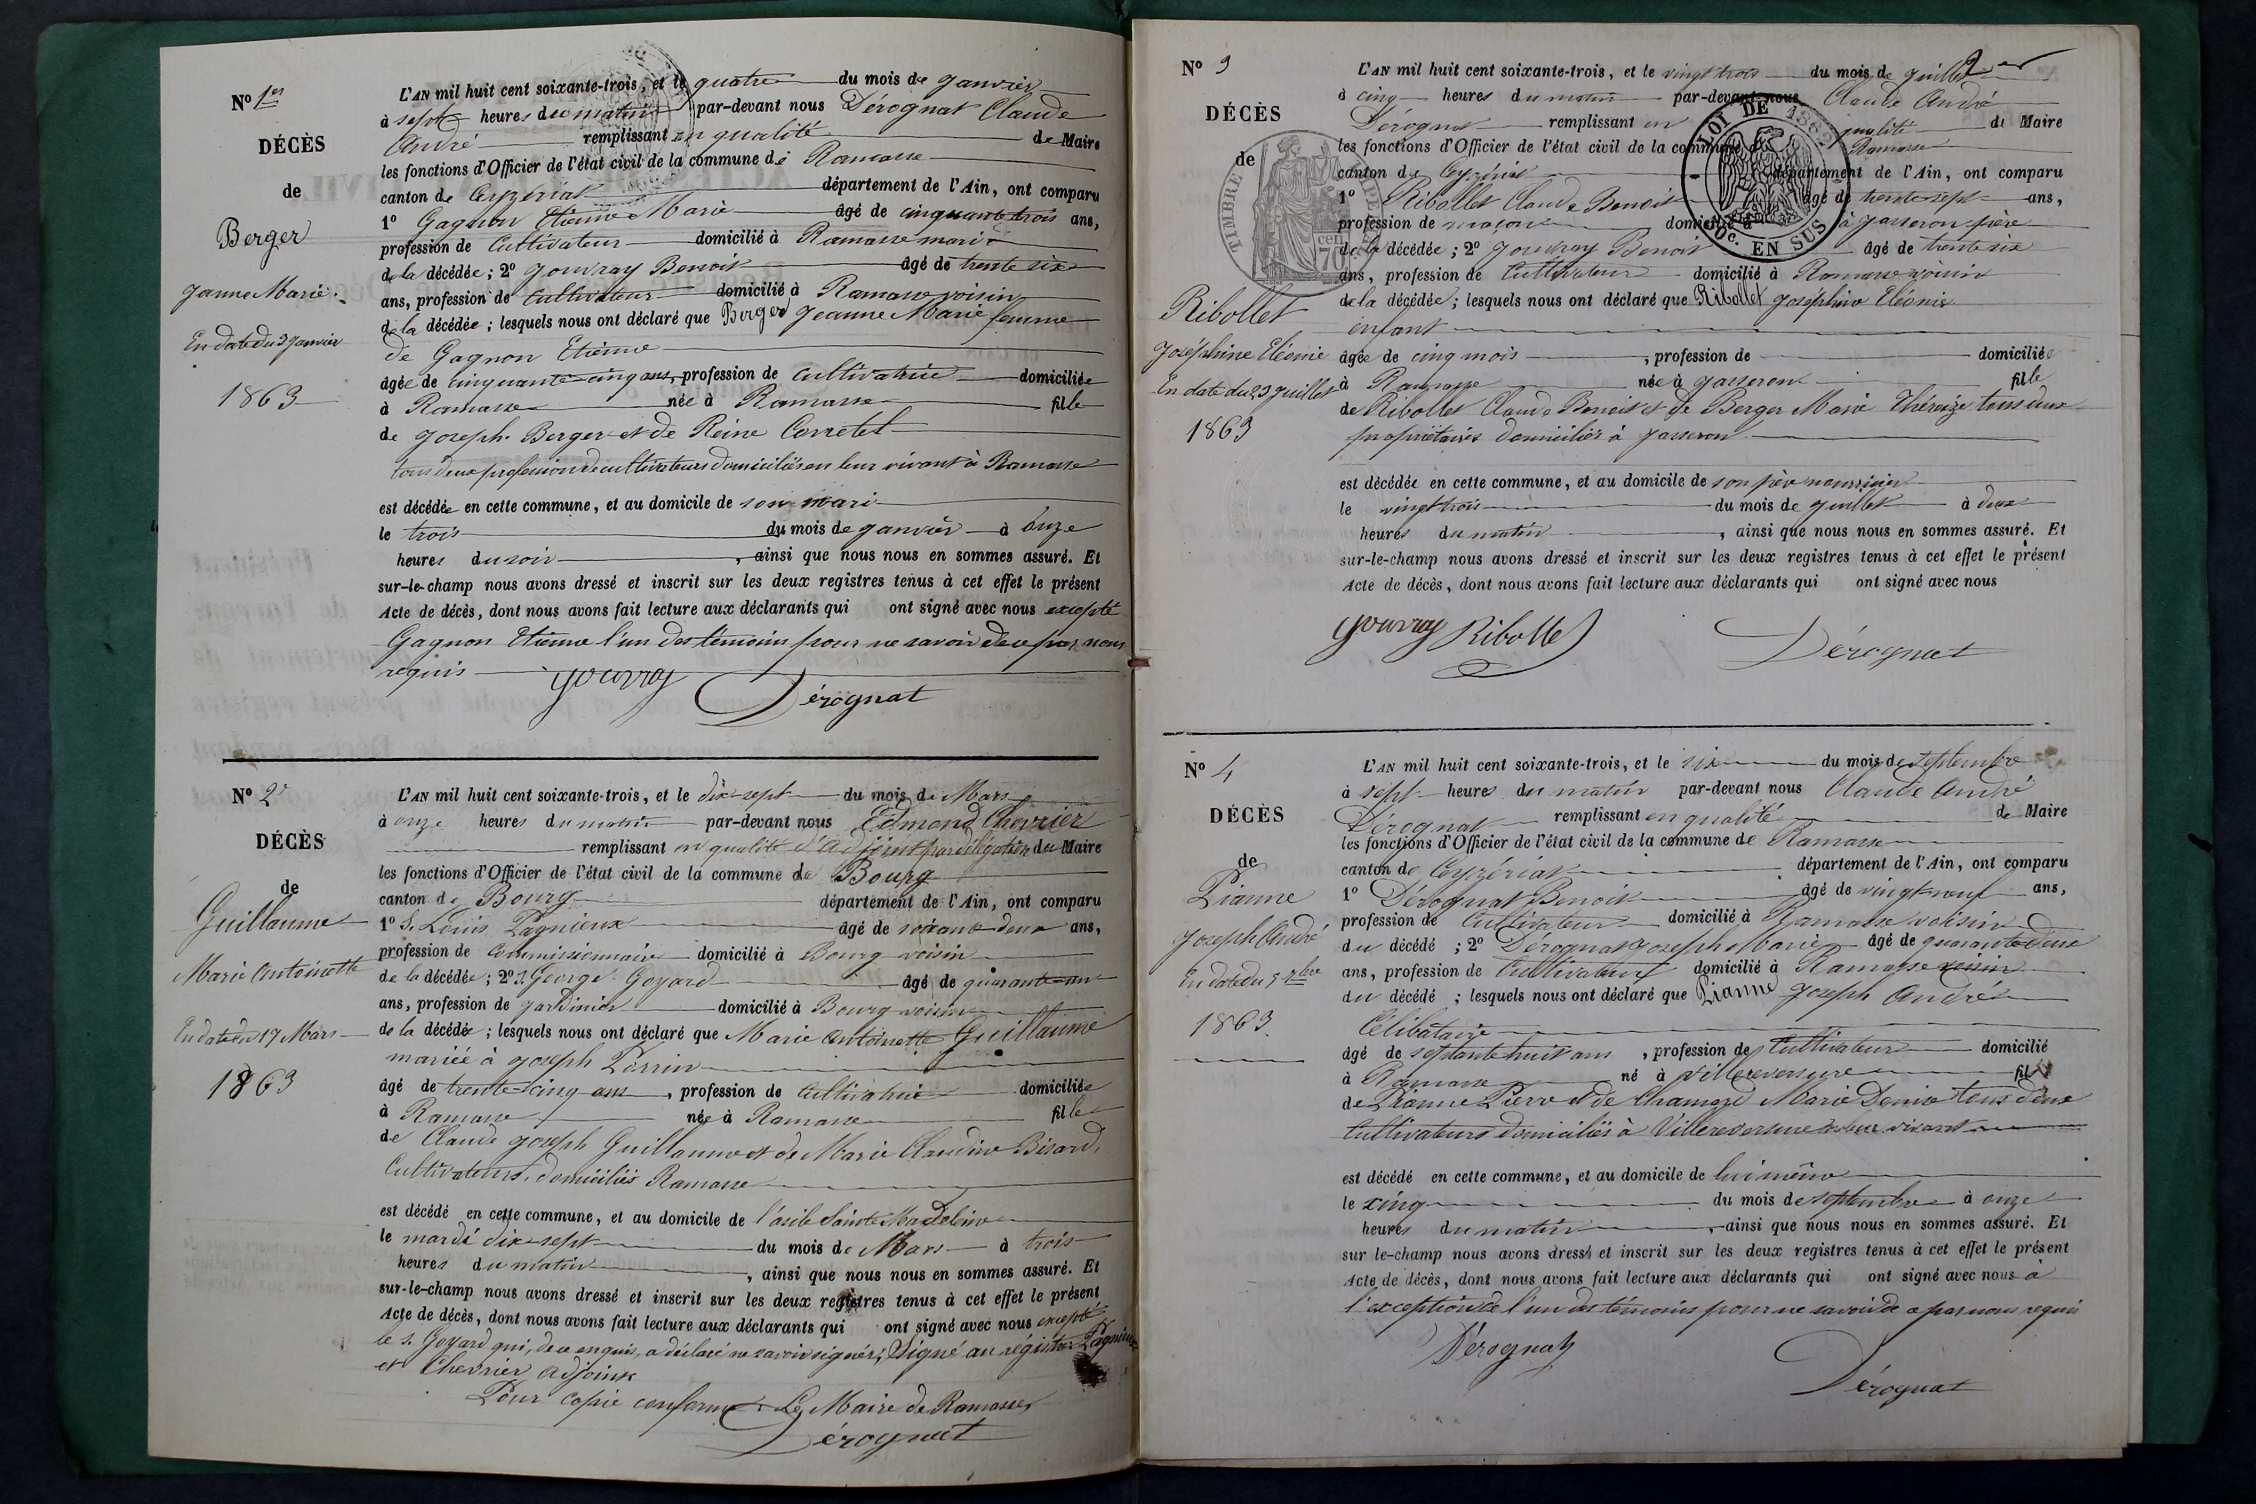 N° 1er
DÉCÈS
de
Berger
Jeanne Marie
En date du 3 Janvier
1863
L'AN mil huit cent soixante-trois, et le quatre du mois de Janvier
à sept heures du matin par-devant nous Dérognat Claude
André remplissant en qualité de Maire
les fonctions d'Officier de l'état civil de la commune de Ramasse
canton de Ceyzériat département de l'Ain, ont comparu
1° Gagnon Etienne Marie âgé de cinquante trois ans,
profession de Cultivateur domicilié à Ramasse mari
de la décédée ; 2° Jouvray Benoit âgé de trente six
ans, profession de Cultivateur domicilié à Ramasse voisin
de la décédée ; lesquels nous ont déclaré que Berger Jeanne Marie femme
de Gagnon Etienne
âgée de cinquante-cinq ans, profession de cultivatrice domiciliée
à Ramasse née à Ramasse fille
de Joseph Berger et de Reine Corretel
tous deux profession de cultivateurs domiciliés en leur vivant à Ramasse
est décédée en cette commune, et au domicile de son mari
le trois du mois de Janvier à onze
heures du soir, ainsi que nous nous en sommes assuré. Et
sur-le-champ nous avons dressé et inscrit sur les deux registres tenus à cet effet le présent
Acte de décès, dont nous avons fait lecture aux déclarants qui ont signé avec nous excepté
Gagnon Etienne l'un des témoins pour ne savoir de ce par nous
requis
Jouvray Dérognat
N° 2
DÉCÈS
de
Guillaume
Marie Antoinette
En date du 17 Mars
1863
L'AN mil huit cent soixante-trois, et le dix-sept du mois de Mars
à onze heures du matin par-devant nous Edmond Chevrier
remplissant en qualité d'adjoint par délégation du Maire
les fonctions d'Officier de l'état civil de la commune de Bourg
canton de Bourg département de l'Ain, ont comparu
1° S. Louis Pagnieux âgé de soixante-deux ans,
profession de commissionnaire domicilié à Bourg voisin
de la décédée ; 2° S. George Goyard âgé de quarante-un
ans, profession de jardinier domicilié à Bourg voisin
de la décédée ; lesquels nous ont déclaré que Marie Antoinette Guillaume
mariée à Joseph Perrin
âgé de trente-cinq ans, profession de cultivatrice domiciliée
à Ramasse née à Ramasse fille
de Claude Joseph Guillaume et de Marie Claudine Bisard,
Cultivateurs, domiciliés Ramasse
est décédé en cette commune, et au domicile de l'asile Sainte Madeleine
le mardi dix-sept du mois de Mars à trois
heures du matin, ainsi que nous nous en sommes assuré. Et
sur-le-champ nous avons dressé et inscrit sur les deux registres tenus à cet effet le présent
Acte de décès, dont nous avons fait lecture aux déclarants qui ont signé avec nous excepté
le s. Goyard qui, de ce enquis, a déclaré ne savoir signer; Signé au régistre Pagnieux
et Chevrier adjoint
Pour copie conforme Le Maire de Ramasse
Dérognat
2
N° 3
DÉCÈS
de
Ribollet
Joséphine Eléonie
En date du 23 Juillet
1863
TIMBRE IMPÉRIAL
70 cen
LOI DE 1862
2 Dc. EN SUS
L'AN mil huit cent soixante-trois, et le vingt trois du mois de Juillet
à cinq heures du matin par-devant nous Claude André
Dérognat remplissant en qualité de Maire
les fonctions d'Officier de l'état civil de la commune de Ramasse
canton de Ceyzériat département de l'Ain, ont comparu
1° Ribollet Claude Benoit âgé de trente-sept ans,
profession de maçon domicilié à à Jasseron père
de la décédée ; 2° Jouvray Benoit âgé de trente six
ans, profession de Cultivateur domicilié à Ramasse voisin
de la décédée ; lesquels nous ont déclaré que Ribollet Joséphine Eléonie
enfant
âgée de cinq mois, profession de domiciliée
à Ramasse née à Jasseron fille
de Ribollet Claude Benoit et de Berger Marie Thérèze tous deux
propriétaires domiciliés à Jasseron
est décédée en cette commune, et au domicile de son père nourricier
le vingt trois du mois de Juillet à deux
heures du matin, ainsi que nous nous en sommes assuré. Et
sur-le-champ nous avons dressé et inscrit sur les deux registres tenus à cet effet le présent
Acte de décès, dont nous avons fait lecture aux déclarants qui ont signé avec nous
Jouvray Ribollet Dérognat
N° 4
DÉCÈS
de
Pianne
Joseph André
En date du 5 7bre
1863
L'AN mil huit cent soixante-trois, et le six du mois de septembre
à sept heures du matin par-devant nous Claude André
Dérognat remplissant en qualité de Maire
les fonctions d'Officier de l'état civil de la commune de Ramasse
canton de Ceyzériat département de l'Ain, ont comparu
1° Dérognat Benoit âgé de vingt-neuf ans,
profession de Cultivateur domicilié à Ramasse voisin
du décédé ; 2° Dérognat Joseph Marie âgé de quarante deux
ans, profession de Cultivateur domicilié à Ramasse voisin
du décédé ; lesquels nous ont déclaré que Pianne Joseph André
Célibataire
âgé de septante huit ans, profession de Cultivateur domicilié
à Ramasse né à Villereversure fils
de Pianne Pierre et de Chamozd Marie Denise tous deux
Cultivateurs domiciliés à Villereversure en leur vivant
est décédé en cette commune, et au domicile de lui même
le cinq du mois de septembre à onze
heures du matin, ainsi que nous nous en sommes assuré. Et
sur le-champ nous avons dressé et inscrit sur les deux registres tenus à cet effet le présent
Acte de décès, dont nous avons fait lecture aux déclarants qui ont signé avec nous à
l'exception de l'un des témoins pour ne savoir de ce par nous requis
Dérognat
Dérognat